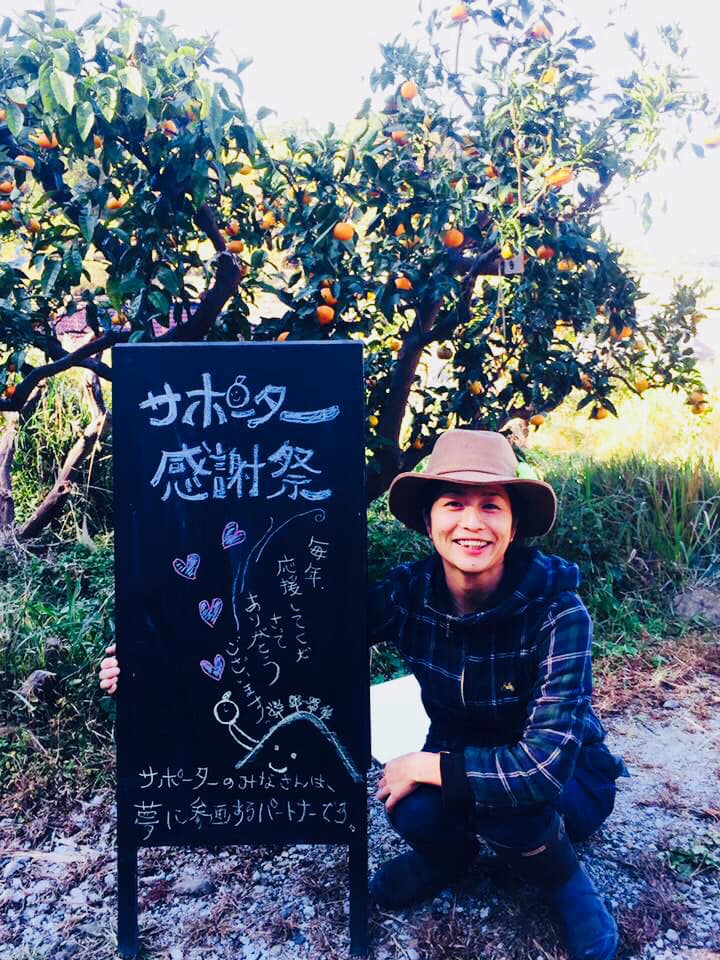 サポーター
感謝祭
毎年、
応援してくだ
さて
ありがとう
ございます
サポーターのみなさんは、
夢に参画するパートナーです。